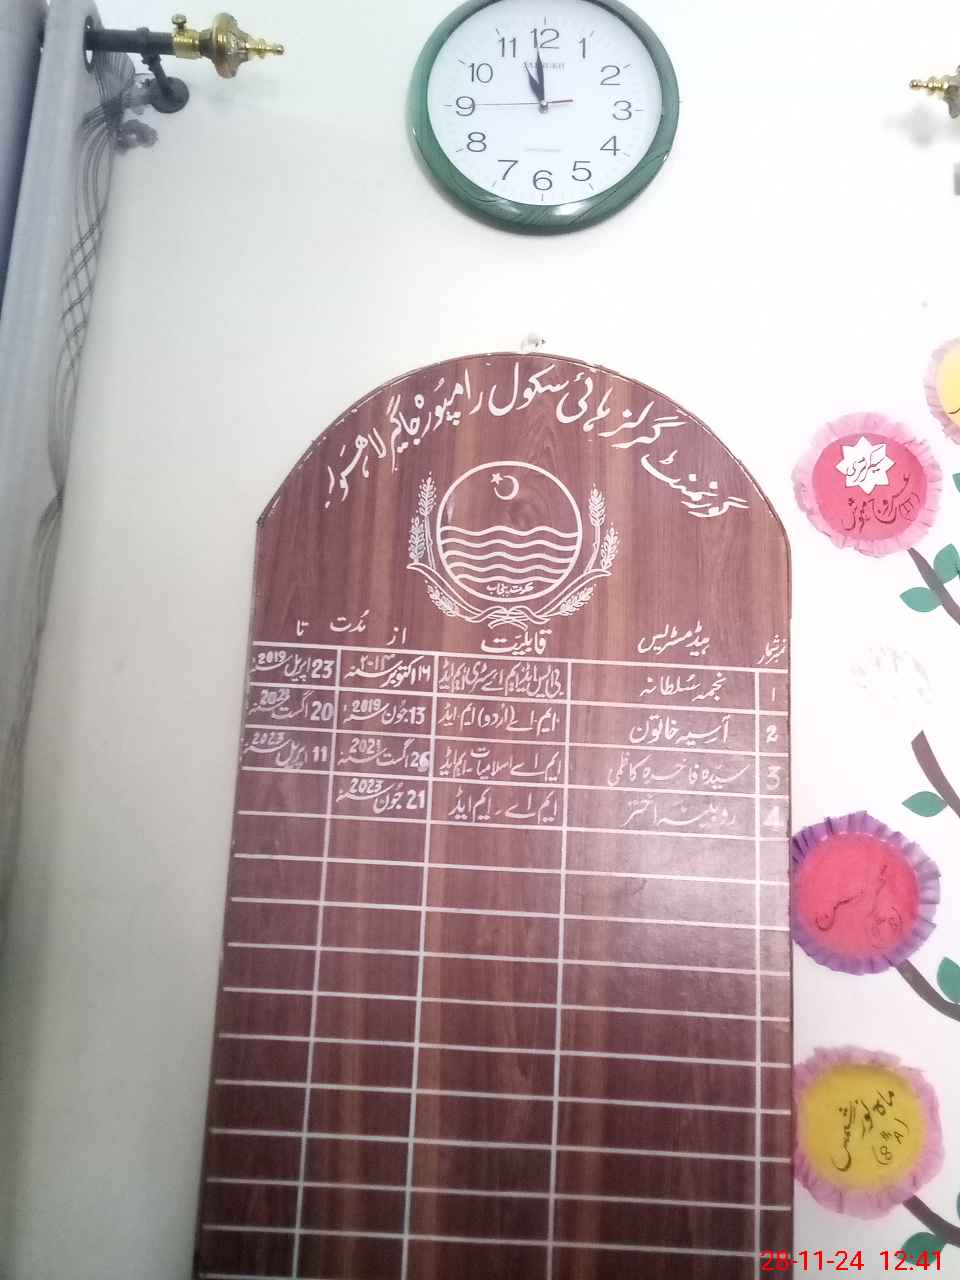 12
1
2
3
4
5
6
7
8
9
10
11
گورنمنٹ گرلز ہائی سکول رامپورہ جاگیر لاہور
حکومت پنجاب
نمبر شمار ہیڈمسٹریس قابلیّت از مُدّت تا
1 نجمہ سُلطانہ بی ایس ایڈ ایم اے ہسٹری ایم ایڈ ۱۶ اکتوبر ۲۰۱۳ 23 اپریل 2019
2 آسیہ خاتون ایم۔اے (اُردو) ایم۔ایڈ 13 جُون 2019 20 اگست 2021
3 سیّدہ فاخرہ کاظمی ایم اے اسلامیات۔ ایم ایڈ 26 اگست 2021 11 اپریل 2023
4 روبینہ اختر ایم اے۔ ایم ایڈ 21 جُون 2023
سیکرٹری
ماہ نور شمس
(8th A)
28-11-24 12:41